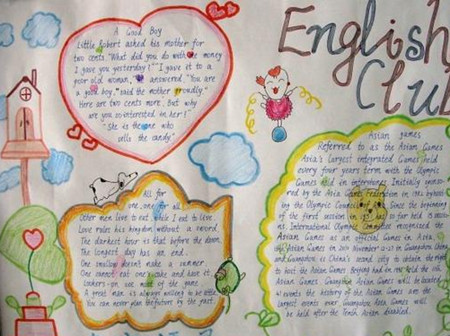 English
Club
A Good Boy
Little Robert asked his mother for
two cents. "What did you do with the money
I gave you yesterday?" "I gave it to a
poor old woman," he answered. "You are
a good boy," said the mother proudly.
Here are two cents more. But why
are you so interested in her?"
"She is the one who
sells the candy."
All for
one, one for all.
Other men live to eat, while I eat to live
Love rules his kingdom without a sword.
The darkest hour is that before the dawn.
The longest day has an end.
One swallow doesn't make a summer.
One cannot eat one's cake and have it.
Lookers-on see most of the game.
A great man is always willing to be little
You can never plan the future by the past.
Asian games
Referred to as the Asian Games
Asia's largest integrated Games held
every four years, term with the Olympic
Games held in Initially
by the Asia Games Federation in the
by the Olympic Council Since the beginning
of the first session in so far held
International Olympic Committee recognized the
Asian Games as an official Games in Asia.
Asian Games in 2010 November 12-27 in Guangzhou China
Guangzhou is China's second city to obtain the right
to host the Asian Games Beijing had in held the 11th
Asian Games. Guangzhou Asian Games will be located
events the history of the Asian Games are the
largest events ever Guangzhou Asian Games will
be held after the Tenth Asian disabled.